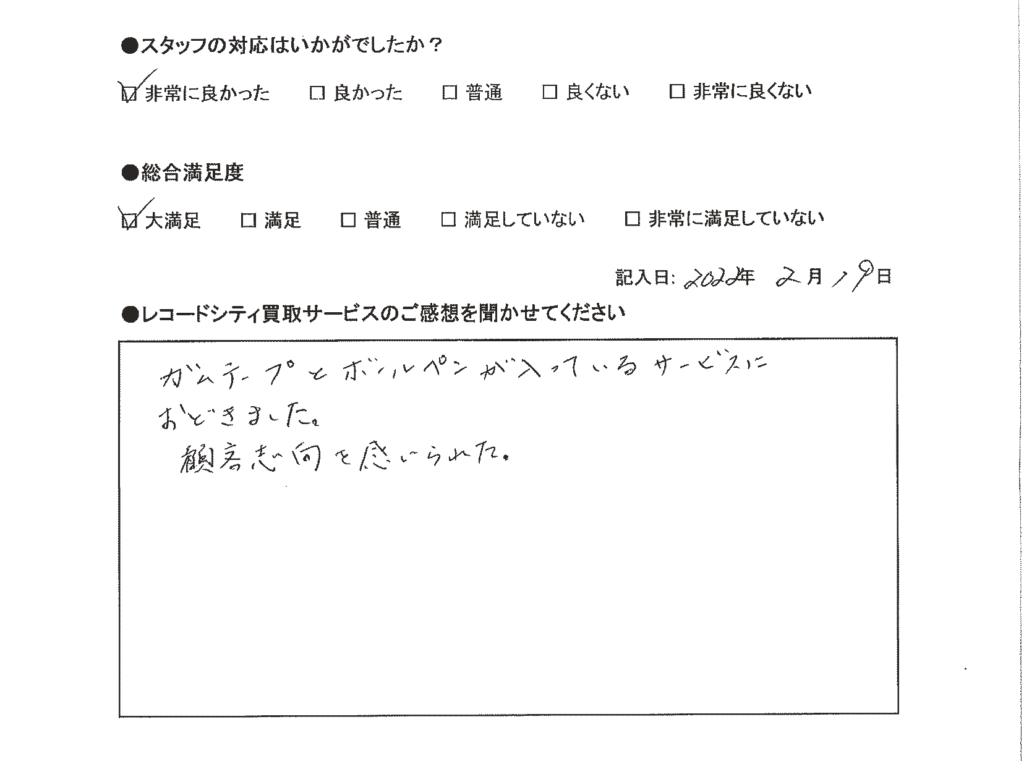 ●スタッフの対応はいかがでしたか？
☑ 非常に良かった　□ 良かった　□ 普通　□ 良くない　□ 非常に良くない
●総合満足度
☑ 大満足　□ 満足　□ 普通　□ 満足していない　□ 非常に満足していない
記入日: 2022年 2月 19日
●レコードシティ買取サービスのご感想を聞かせてください
ガムテープとボールペンが入っているサービスに
おどきました。
顧客志向を感じられた。